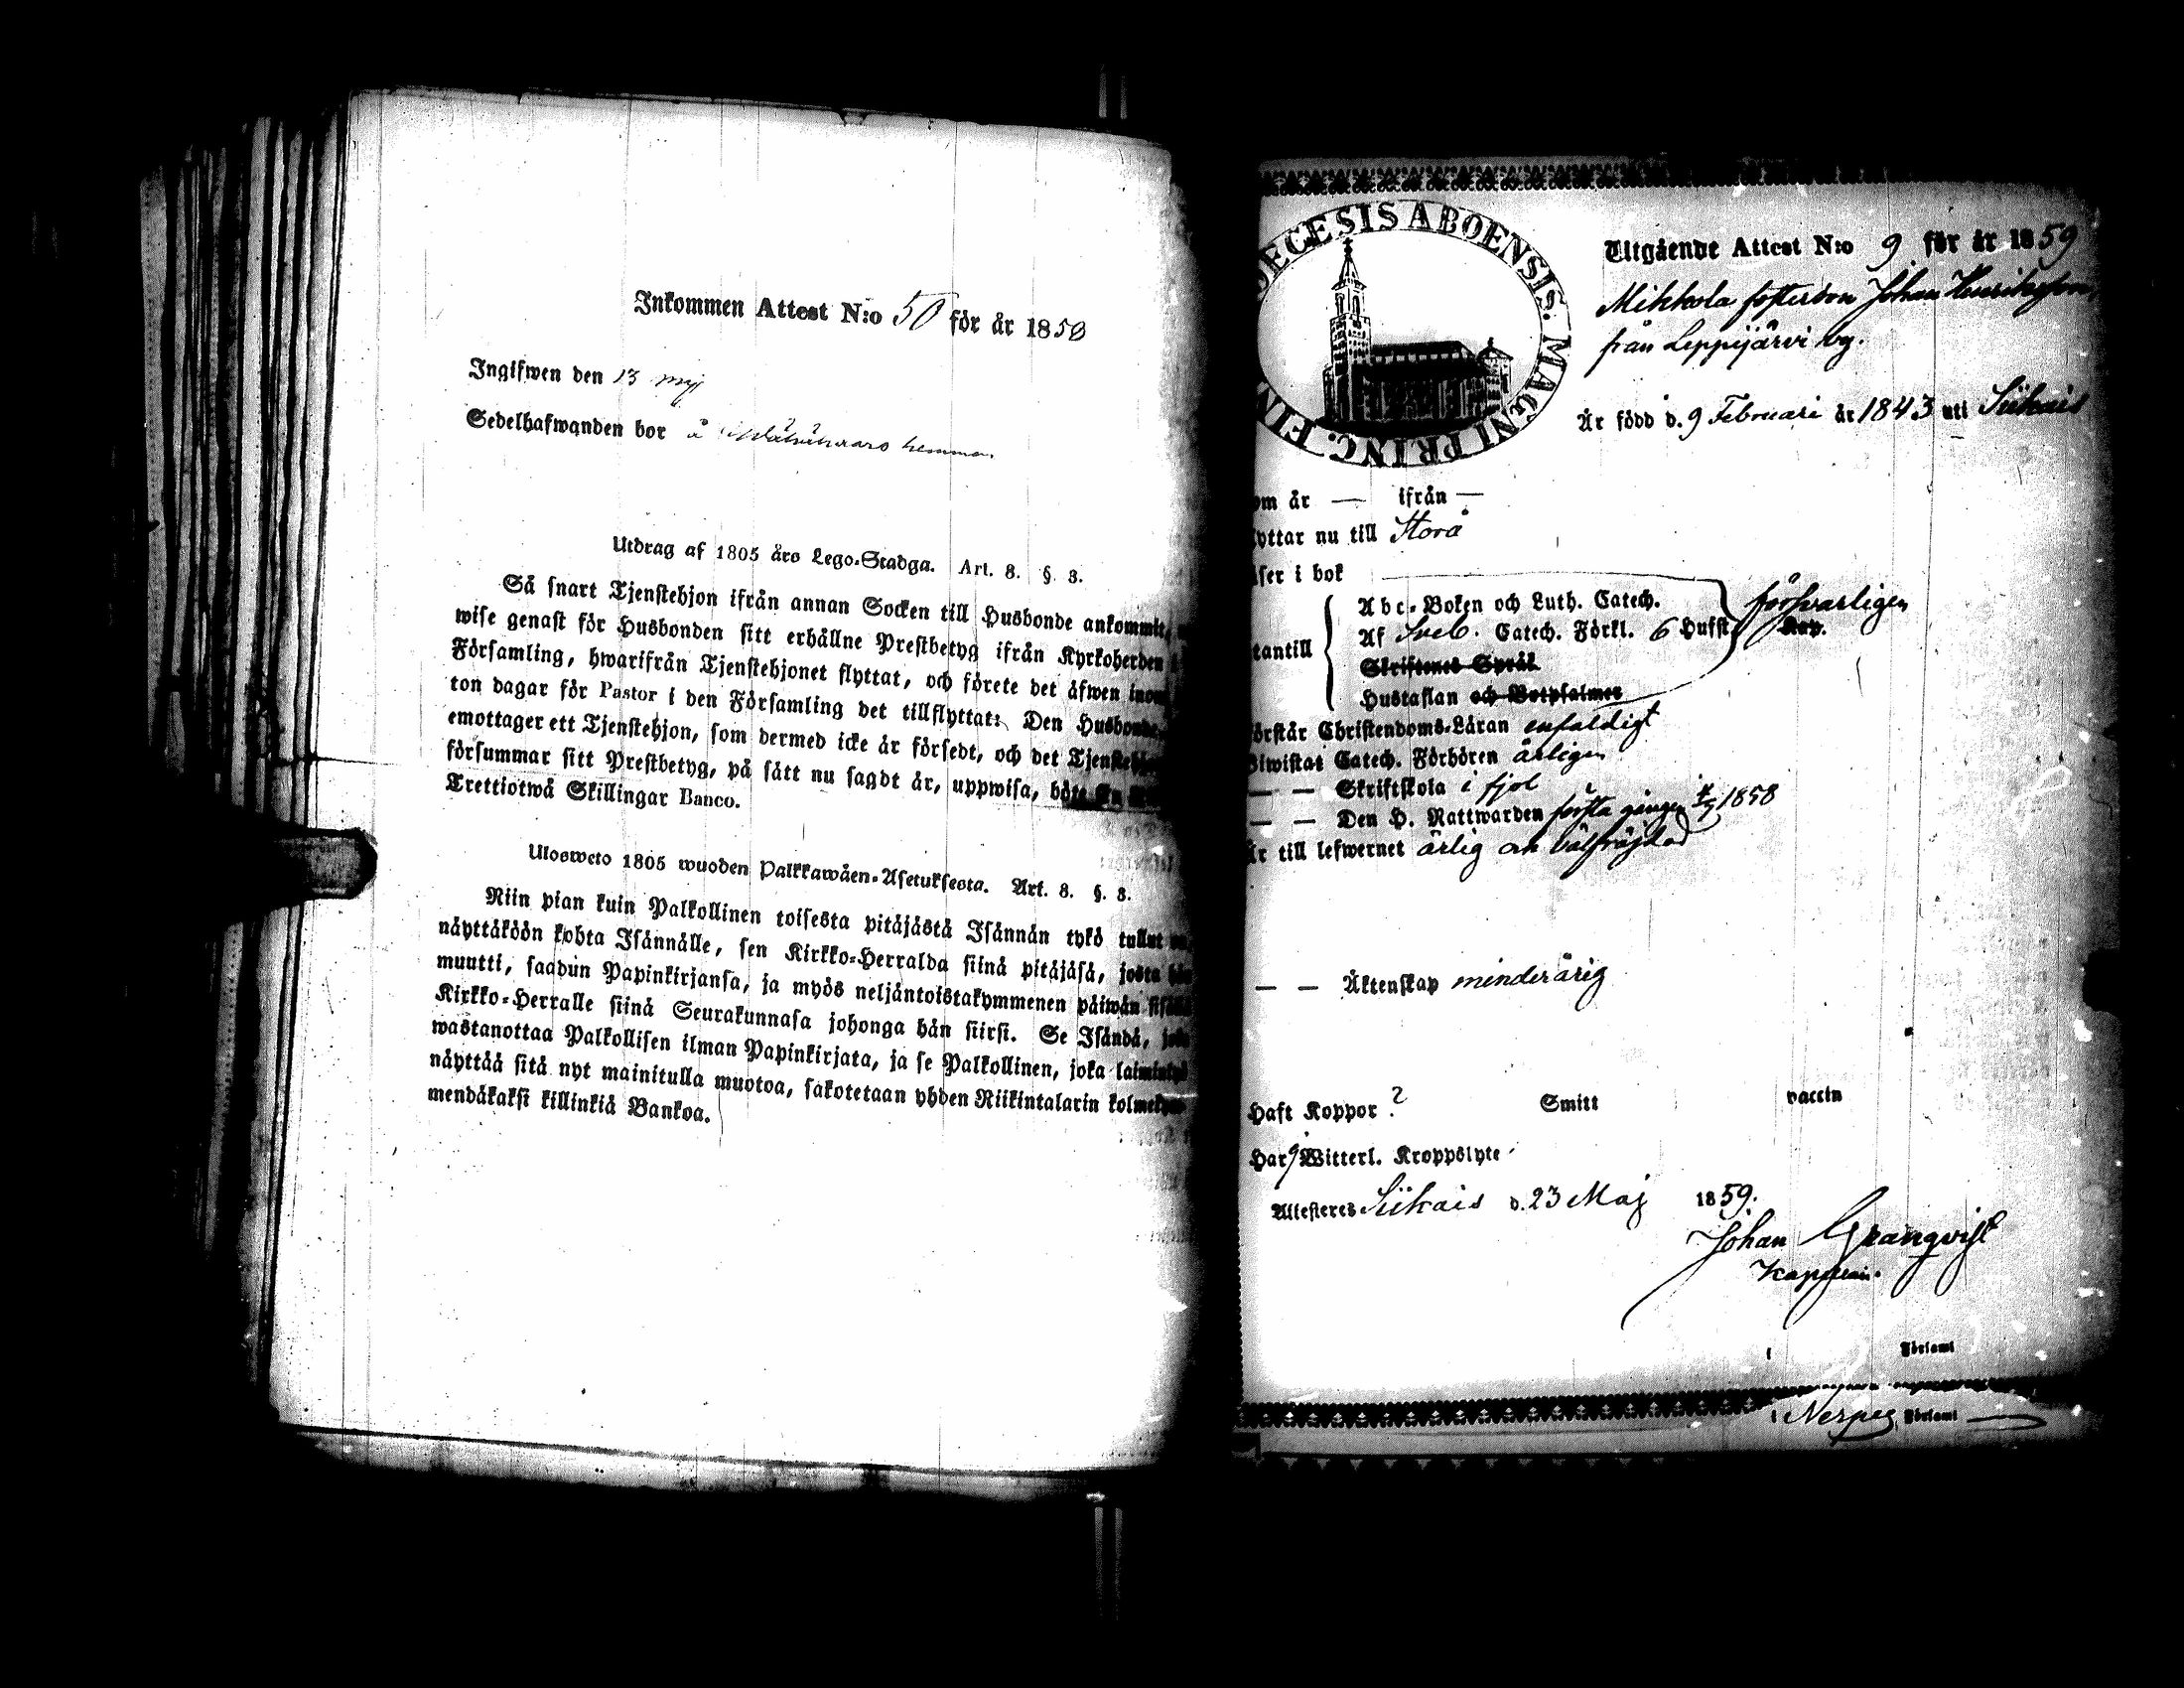 Inkommen Attest N:o 50 för år 1850
Ingifwen den 13 maj
Sedelhafwanden bor å hemman
Utdrag af 1805 års Lego-Stadga. Art. 8. §. 8.
Så snart Tjenstehjon ifrån annan Socken till Husbonde ankommit,
wise genast för Husbonden sitt erhållne Prestbetyg ifrån Kyrkoherden i
Församling, hwarifrån Tjenstehjonet flyttat, och förete det åfwen inom
ton dagar för Pastor i den Församling det tillflyttat: Den Husbonde,
emottager ett Tjenstehjon, som dermed icke är försedt, och det Tjenstehjon
försummar sitt Prestbetyg, på sått nu sagdt är, uppwisa, böte En
Trettiotwå Skillingar Banco.
Ulosweto 1805 wuoden Palkkawåen-Asetuksesta. Art. 8. §. 8.
Niin pian kuin Palkollinen toisesta pitäjästä Isännän tykö tullut on,
näyttäköön kohta Isännälle, sen Kirkko-Herralda siinä pitäjäsä, josta hän
muutti, saadun Papinkirjansa, ja myös neljäntoistakymmenen päiwän sisällä
Kirkko-Herralle siinä Seurakunnasa johonga hän siirsi. Se Isändä, joka
wastanottaa Palkollisen ilman Papinkirjata, ja se Palkollinen, joka laimin
näyttää sitä nyt mainitulla muotoa, sakotetaan yhden Riikintalarin kolmekym
mendäkaksi killinkiä Bankoa.
DECESIS ABOENSIS. MAGNI PRINC. FIN
Utgående Attest N:o 9 för år 1859
Mikkola fosterson Johan Henriksson,
från Leppijärvi by.
År född d. 9 Februari år 1843 uti Siikais
om år — ifrån —
yttar nu till Storå
äser i bok
Abc-Boken och Luth. Catech. försvarligen
tantill Af Sveb. Catech. Förkl. 6 Hufst. Kap.
Skriftenes Språk
Hustaflan och Botpsalmer
örstår Christendoms-Läran enfaldigt
Biwistat Catech. Förhören årligen
— — Skriftskola i fjol
— — Den H. Nattwarden första gången 1858
Är till lefwernet ärlig och välfräjdad
— — Äktenskap minderårig
Haft Koppor ? Smitt vaccin
Har Witterl. Kroppslyte
Attesteres Siikais d. 23 Maj 1859.
Johan Granqvist
Kapellan.
i Församl
i Nerpes Församl